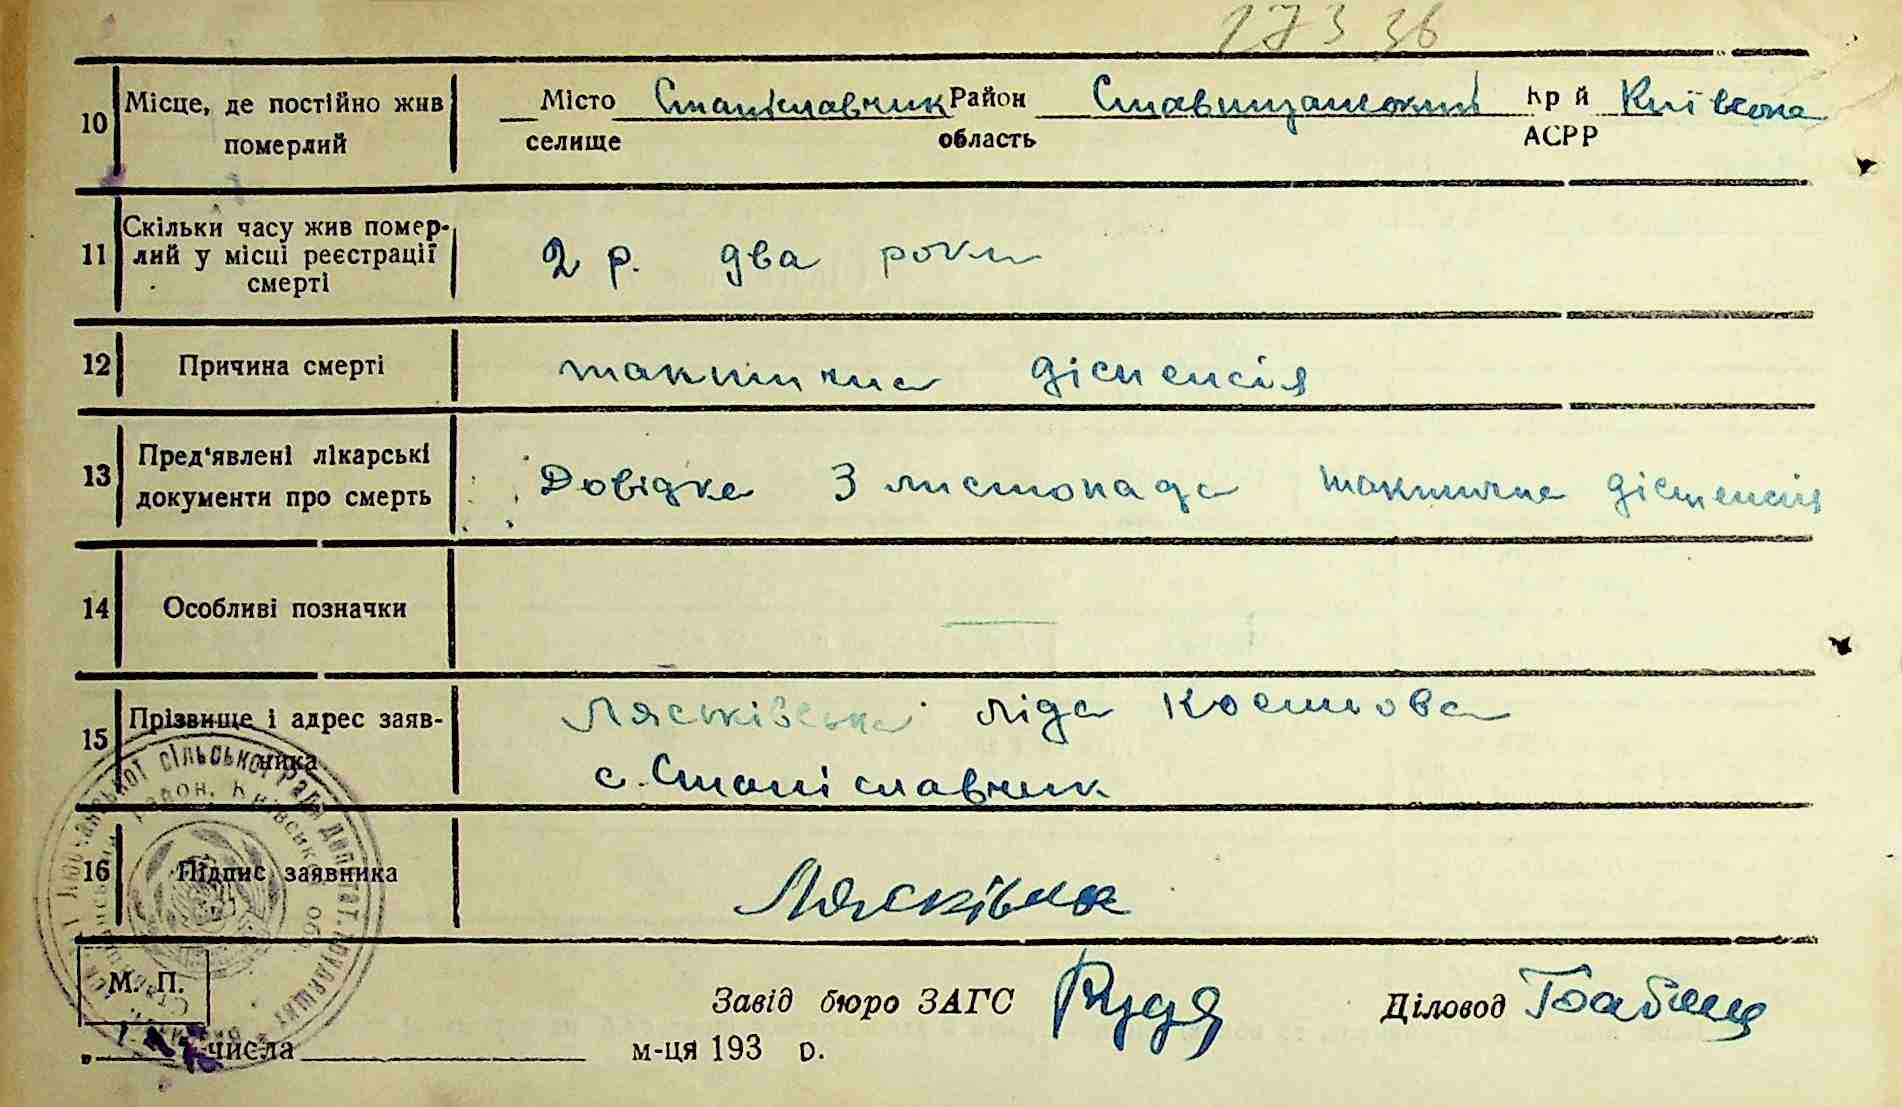 17336
10 Місце, де постійно жив померлий
Місто селище Станіславчик Район область Ставищанський Кр й АСРР Київська
11 Скільки часу жив помер-
лий у місці реєстрації
смерті
2 р. два роки
12 Причина смерті
токсична діспепсія
13 Пред'явлені лікарські
документи про смерть
Довідка 3 листопада токсична діспепсія
14 Особливі позначки
—
15 Прізвище і адрес заяв-
ника
Ляськівська Ліда Костьова
с. Станіславчик
16 Підпис заявника
М. П.
Завід бюро ЗАГС Рудя Діловод
„ числа м-ця 193 р.
сільської Ради депутат. трудящих
район, Київської обл.